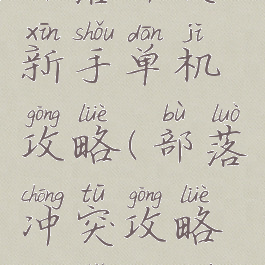 xīn shǒu dān jī
新手单机
gōng lüè bù luò
攻略(部落
chōng tū gōng lüè
冲突攻略